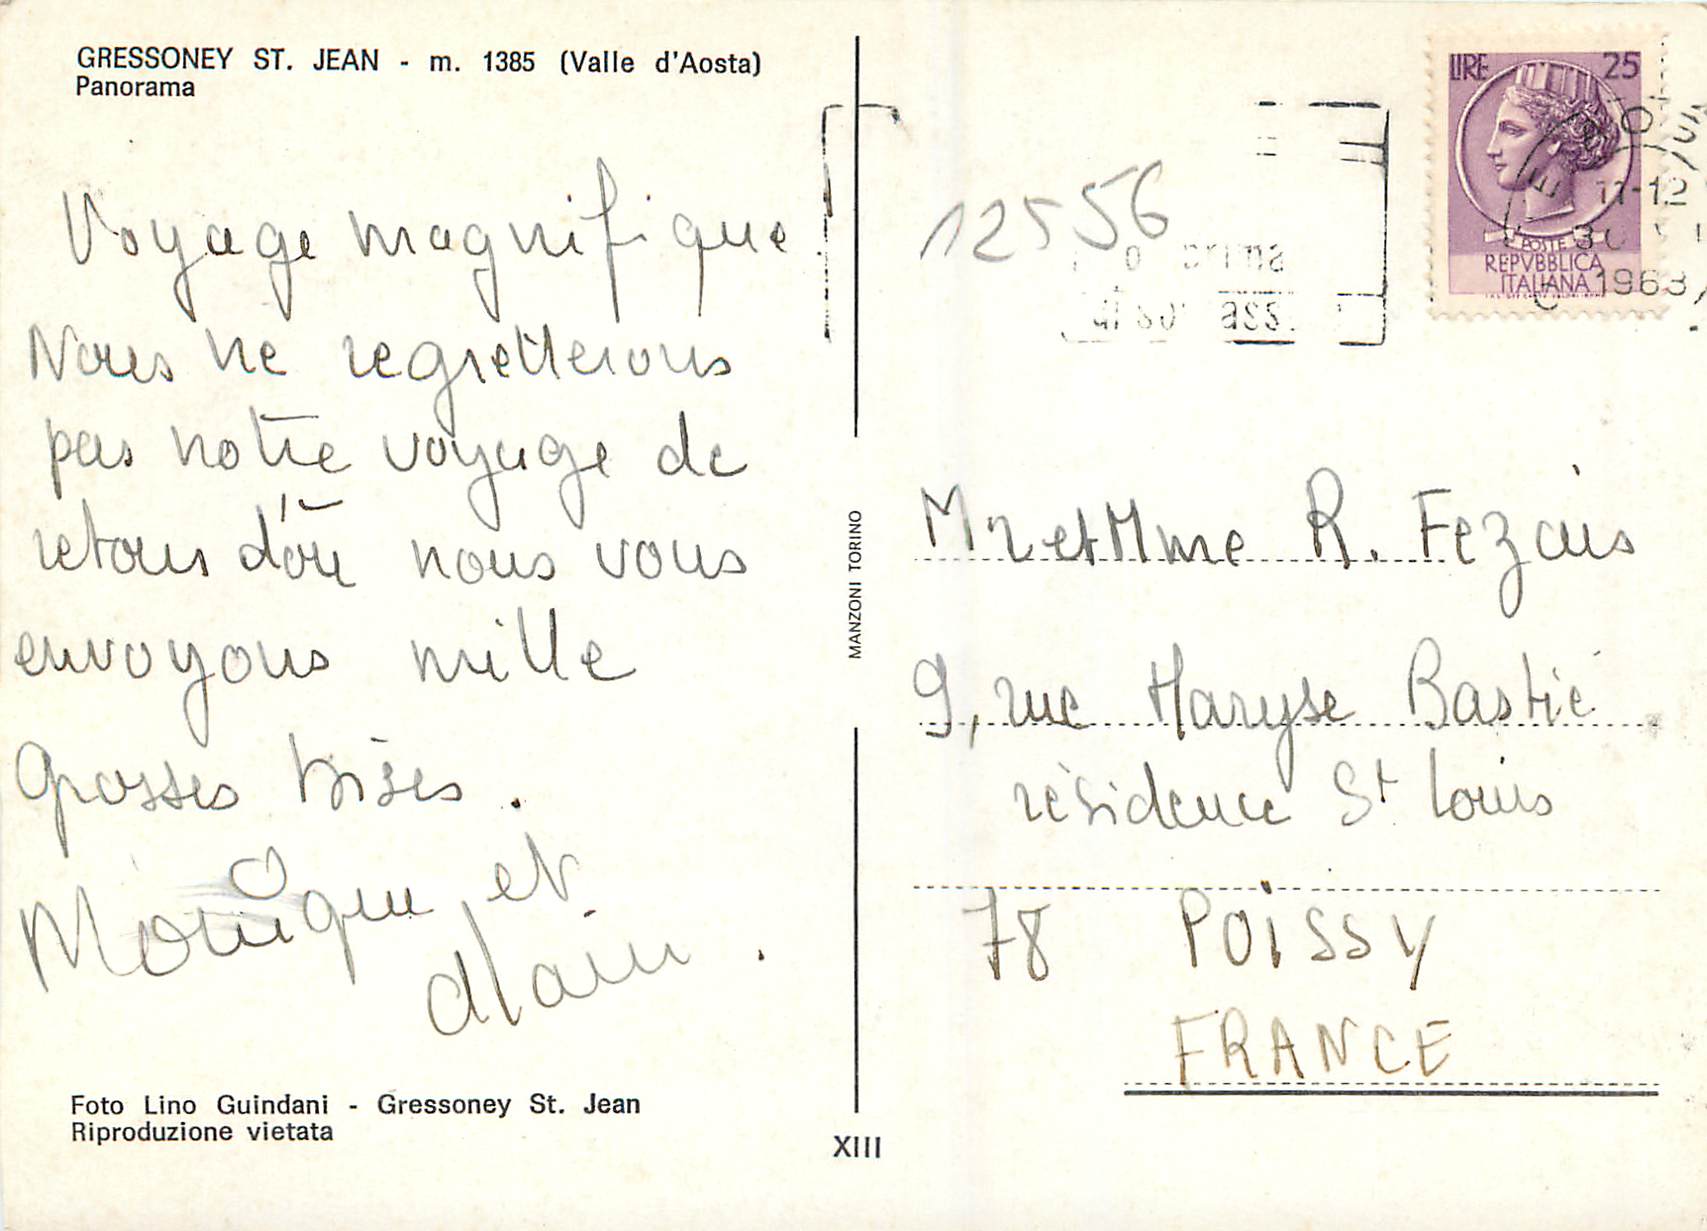 GRESSONEY ST. JEAN - m. 1385 (Valle d'Aosta)
Panorama
Voyage magnifique
Nous ne regretterons
pas notre voyage de
retour d'où nous vous
envoyons mille
grosses bises.
Monique et
Alain.
Foto Lino Guindani - Gressoney St. Jean
Riproduzione vietata
MANZONI TORINO
XIII
12556
LIRE 25
POSTE
REPVBBLICA
ITALIANA
11-12
1968
prima
Mr et Mme R. Fezais
9, rue Maryse Bastié
résidence St Louis
78 POISSY
FRANCE